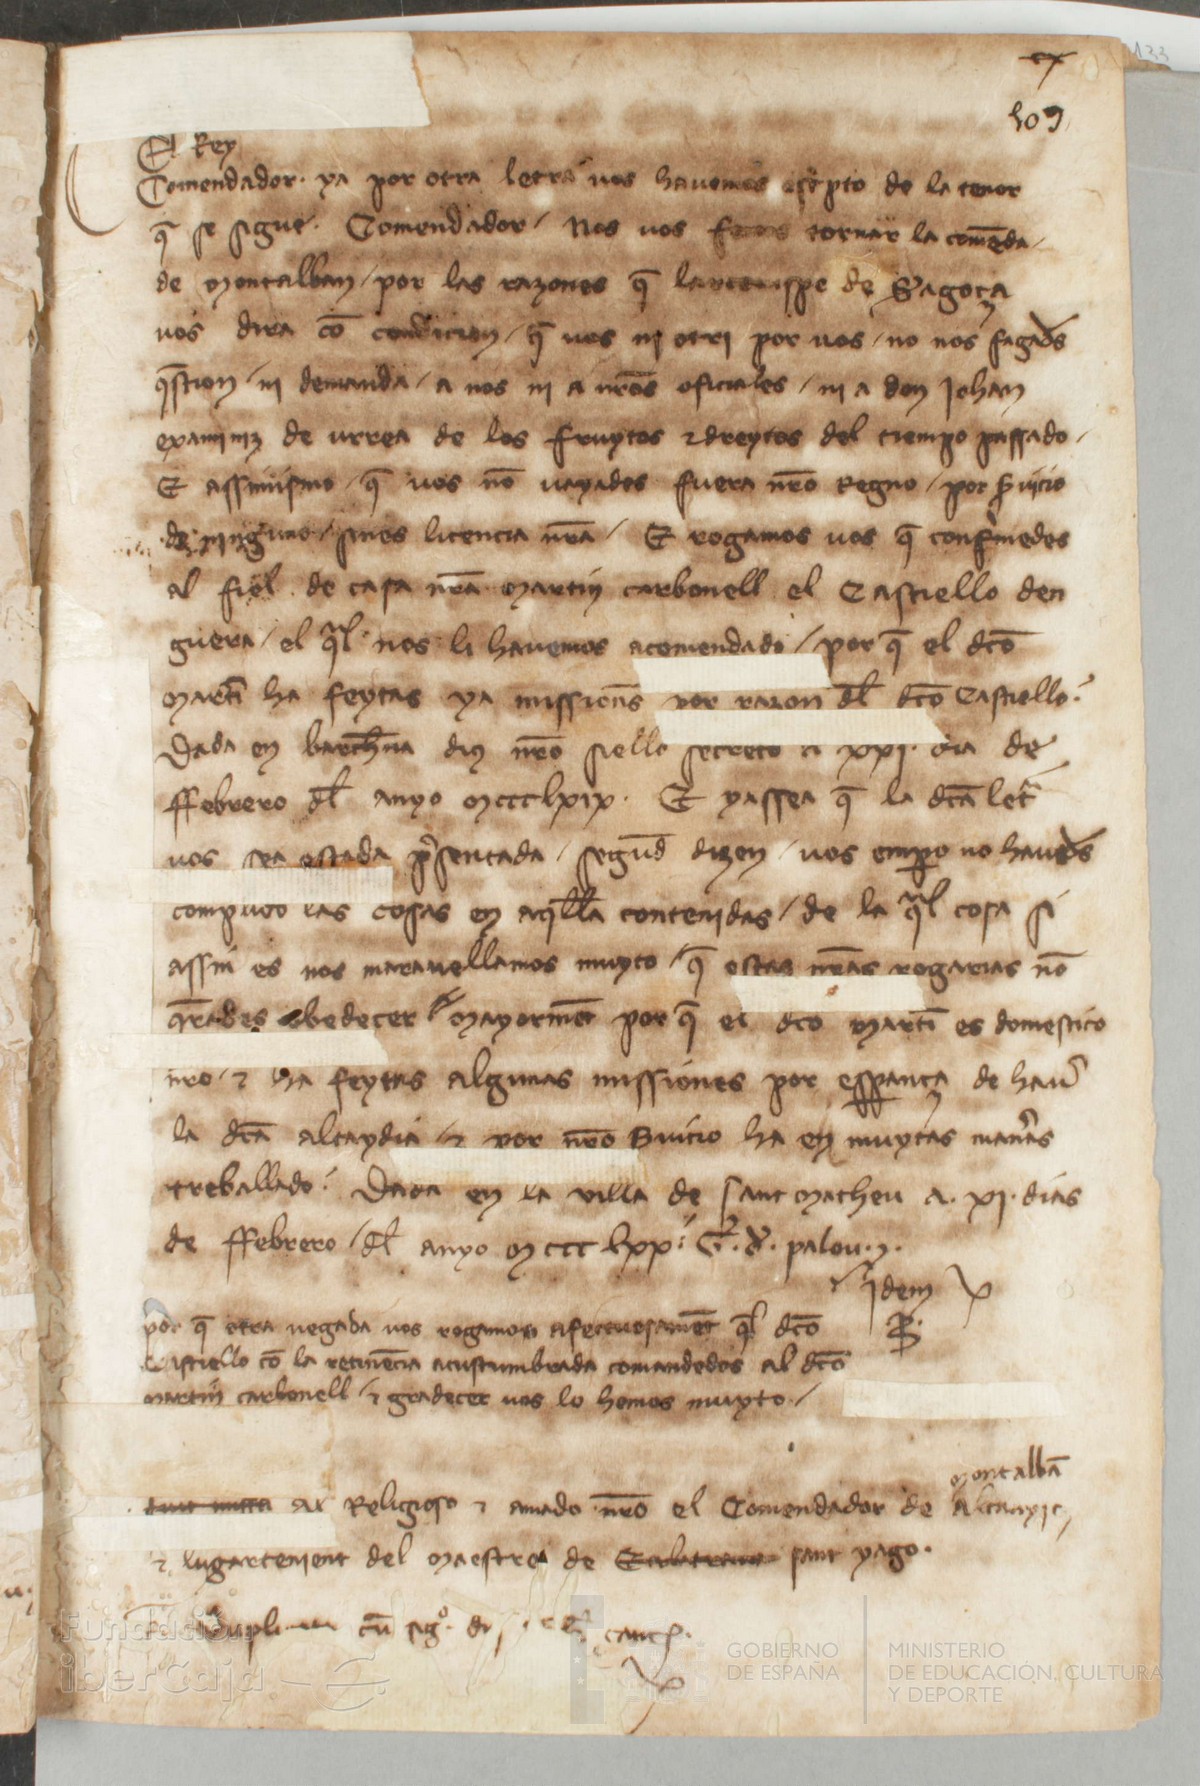 cx
109
133
El Rey
Comendador. ya por otra letra vos havemos scripto de la tenor
q̄ se sigue. Comendador / Nos vos femos tornar la comēda /
de Montalban / por las razones q̄ larceuispe de Çaragoça
vos dira cō condicion / q̄ vos ni otri por vos / no nos fagades
q̄stion / ni demanda / a nos ni a nr̄os oficiales / ni a don Johan
examiniz de urrea de los fruytos e dreytos del tiempo passado /
E assimismo / q̄ vos nō vayades fuera nr̄o Regno / por s̄uicio
de ninguno / sines licencia nr̄a / E rogamos vos q̄ confirmedes
al fiel de casa nr̄a Martin carbonell el Castiello den
guera / el q̄l nos li havemos acomendado / por q̄ el dc̄o
Martī ha feytas ya missiones por razon dl̄ dc̄o Castiello.
Dada en barch̄na dius nr̄o siello secreto a xxi. dia de
ffebrero dl̄ anyo Mccclxix. E yassea q̄ la dc̄a letr̄
vos sea estada p̄sentada / segund dizen / vos emp̄o no havedes
complido las cosas en aq̄lla contenidas / de la q̄l cosa si
assin es nos maravellamos muyto / q̄ estas nr̄as rogarias nō
q̄rades obedecer / mayorment por q̄ el dc̄o Martī es domestico
nr̄o / e ha feytas algunas missiones por esperança de hau̅
la dc̄a alcaydia / e por nr̄o s̄uicio ha en muytas maneras
treballado. Dada en la villa de sant Matheu a. xi. dias
de ffebrero / dl̄ anyo Mccclxx. G. d. palou.
Idem
P.
por q̄ otra vegada vos rogamos afectuosament q̄l dc̄o
Castiello cō la retinēcia acustumbrada comandedes al dc̄o
Martin carbonell / e gradecer vos lo hemos muyto /
montalbā
Al Religioso e amado nr̄o el Comendador de Alcanyiç
e lugartenient del Maestre de Calatrava sant yago.
cū sig̊.
Fundación
iberCaja
GOBIERNO
DE ESPAÑA
MINISTERIO
DE EDUCACIÓN, CULTURA
Y DEPORTE